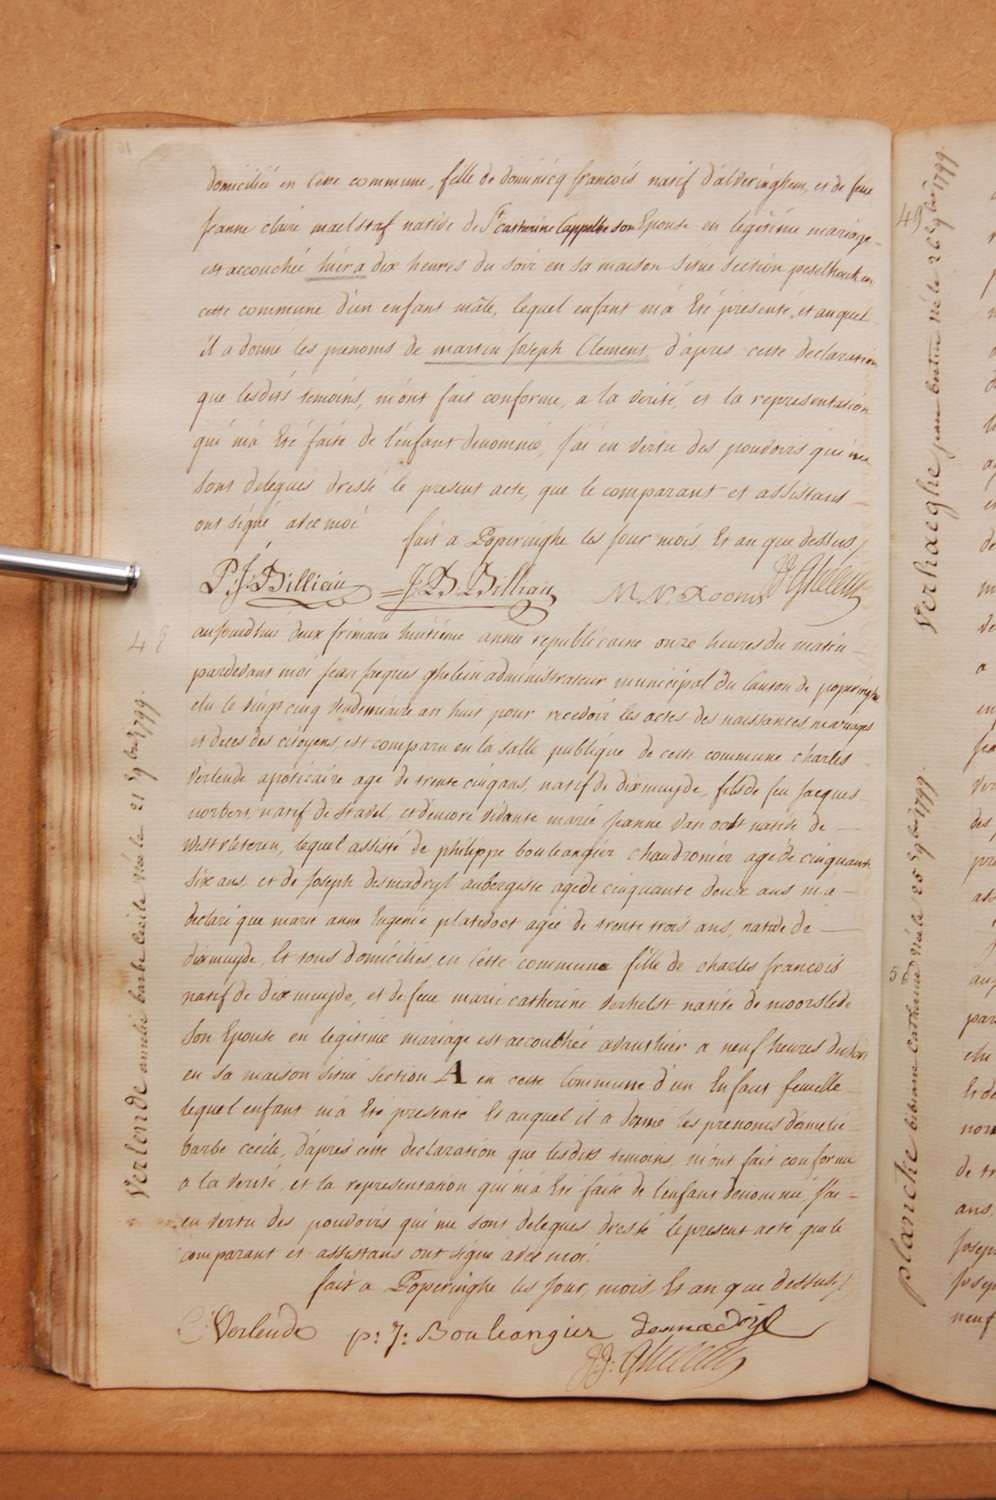 domiciliée en cette commune, fille de dominicq françois natif d'alveringhem, et de feue
Jeanne claire maelstaf native de St catherine Cappelle son Epouse en legitime mariage
est accouchée hiér a dix heures du soir en sa maison située section peselhoek en
cette commune d'un enfant mâle, lequel enfant m'a Eté presenté, et auquel
il a donné les prenoms de martin Joseph Clement, d'après cette declaration
que lesdits temoins, m'ont fait conforme, a la verité, et la representation
qui m'a Eté faite de l'enfant denommé, J'ai en vertu des pouvoirs qui me
sont delegués dressé le present acte, que le comparant et assistans
ont signé avec moi
fait a Poperinghe les Jour mois Et an que dessus
P: J: Billiau J. B. Billiau M. N. Rooms JJ Ghelein
48
aujourdhui deux frimaire huitiéme année republicaine onze heures du matin
pardevant moi Jean Jacques ghelein administrateur municipal du Canton de poperinghe
elu le vingt cinq vendemiaire an huit pour recevoir les actes des naissances mariages
et deces des citoyens, est comparu en la salle publique de cette commune charles
Verlende apoticaire agé de trente cinq ans, natif de dixmuyde, fils de feu Jacques
norbert, natif de stavel, et d'encore vivante marie Jeanne van oost native de
westvleteren, lequel assisté de philippe boulengiér chaudroniér agé de cinquante
six ans et de Joseph desmadryl aubergiste agé de cinquante deux ans m'a
declaré que marie anne Eugenie platevoet agée de trente trois ans, native de
dixmuyde, Et tous domiciliés en cette commune fille de charles françois
natif de dixmuyde, et de feue marie catherine verhelst native de moorslede
son Epouse en legitime mariage est accouchée avanthiér a neuf heures du soir
en sa maison située section A en cette Commune d'un Enfant femelle
lequel enfant m'a Eté presenté Et auquel il a donné les prenoms d'amelie
barbe cecile, d'aprés cette declaration que lesdits temoins, m'ont fait conforme
a la verité, et la representation qui m'a Eté faite de l'enfant denommé, J'ai
en vertu des pouvoirs qui me sont delegués dressé le present acte que le
comparant et assistans ont signé avec moi
fait a Poperinghe les Jour, mois Et an que dessus
C: Verlende p: J: Boulangier desmadryl
J: J: Ghelein
Verlende amelie barbe Cecile née le 21 9bre 1799.
49
Verhaeghe jean bertin né le 26 9bre 1799
50
planche bibiane Catherine née le 25 9bre 1799.